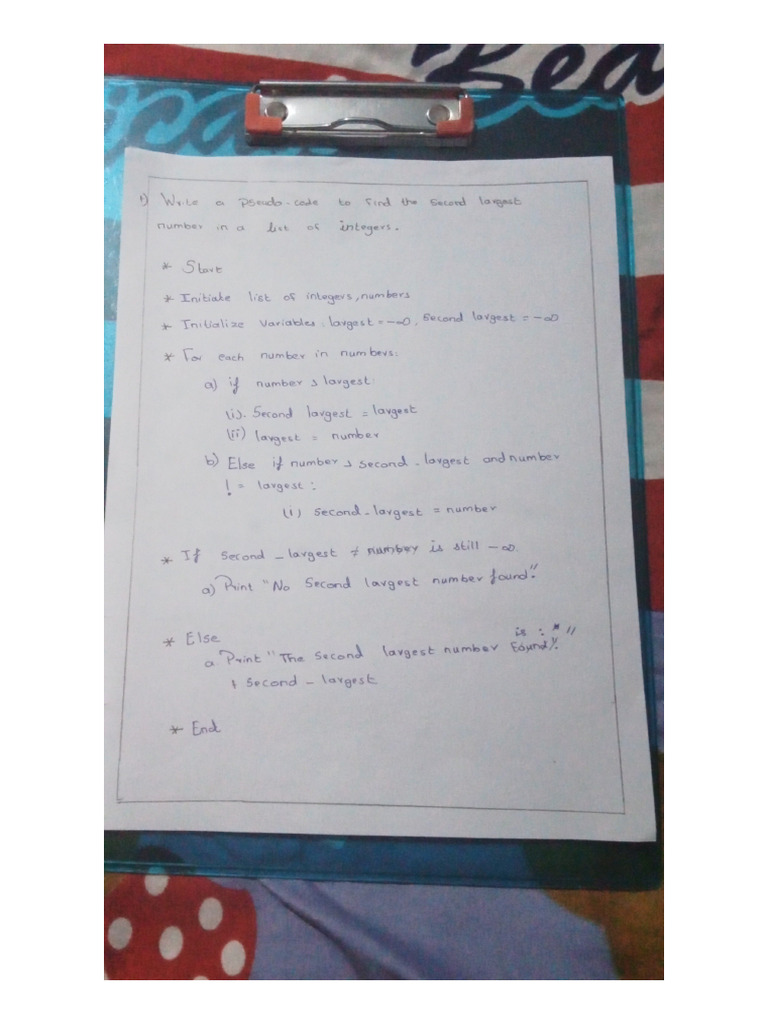 Bea
1) Write a pseudo-code to find the second largest
number in a list of integers.
* Start
* Initiate list of integers, numbers
* Initialize Variables: largest = -∞, Second largest = -∞
* For each number in numbers:
a) if number > largest:
(i). Second largest = largest
(ii) largest = number
b) Else if number > second-largest and number
! = largest:
(i) second-largest = number
* If second_largest ≠ number is still -∞.
a) Print "No Second largest number found".
* Else
a Print "The Second largest number found". is : "
+ second_largest
* End